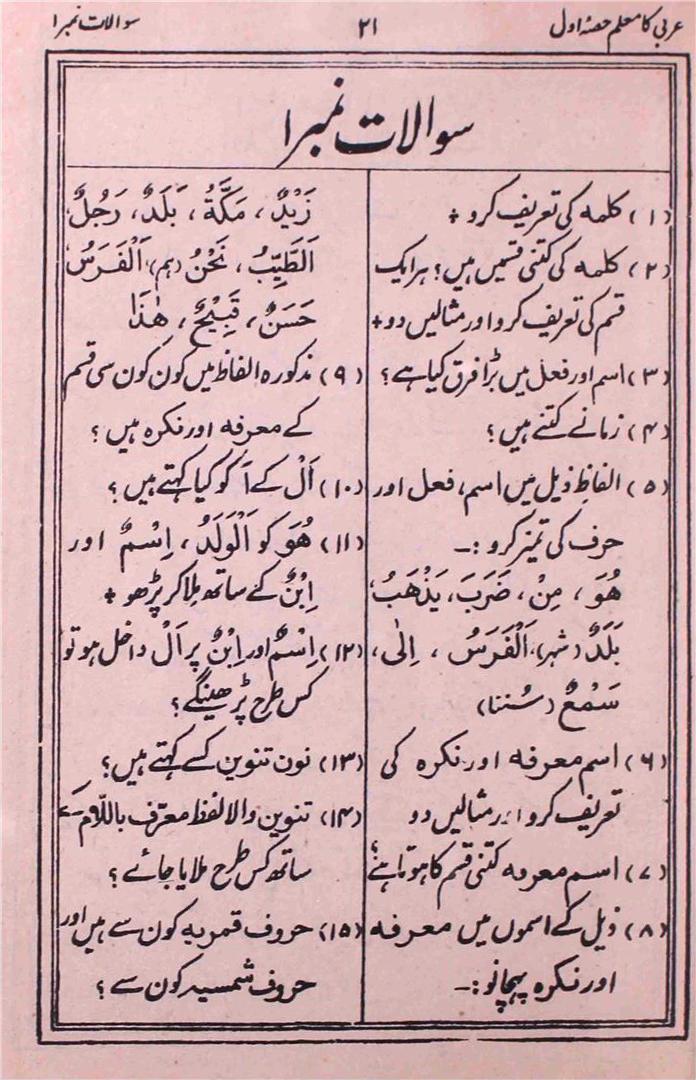 عربی کا معلم حصہ اول
۲۱
سوالات نمبر۱
سوالات نمبر۱
(۱) کلمہ کی تعریف کرو +
(۲) کلمہ کی کتنی قسمیں ہیں؟ ہر ایک
قسم کی تعریف کرو اور مثالیں دو +
(۳) اسم اور فعل میں بڑا فرق کیا ہے؟
(۴) زمانے کتنے ہیں؟
(۵) الفاظِ ذیل میں اسم، فعل اور
حرف کی تمیز کرو :-
هُوَ، مِنْ، ضَرَبَ، يَذْهَبُ،
بَلَدٌ (شہر)، اَلْفَرَسُ، اِلٰی،
سَمْعٌ (سُننا)
(۶) اسم معرفہ اور نکرہ کی
تعریف کرو اور مثالیں دو
(۷) اسم معرفہ کتنی قسم کا ہوتا ہے؟
(۸) ذیل کے اسموں میں معرفہ
اور نکرہ پہچانو :-
زَيْدٌ، مَكَّةُ، بَلَدٌ، رَجُلٌ
اَلطَّيِّبُ، نَحْنُ (ہم)، اَلْفَرَسُ
حَسَنٌ، قَبِيْحٌ، هٰذَا
(۹) مذکورہ الفاظ میں کون کون سی قسم
کے معرفہ اور نکرہ ہیں؟
(۱۰) اَلْ کے اَ کو کیا کہتے ہیں؟
(۱۱) هُوَ کو اَلْوَلَدُ، اِسْمٌ اور
اِبْنٌ کے ساتھ ملا کر پڑھو +
(۱۲) اِسْمٌ اور اِبْنٌ پر اَلْ داخل ہو تو
کس طرح پڑھینگے؟
(۱۳) نون تنوین کسے کہتے ہیں؟
(۱۴) تنوین والا لفظ معرّف باللّام کے
ساتھ کس طرح ملایا جائے؟
(۱۵) حروف قمریہ کون سے ہیں اور
حروف شمسیہ کون سے؟